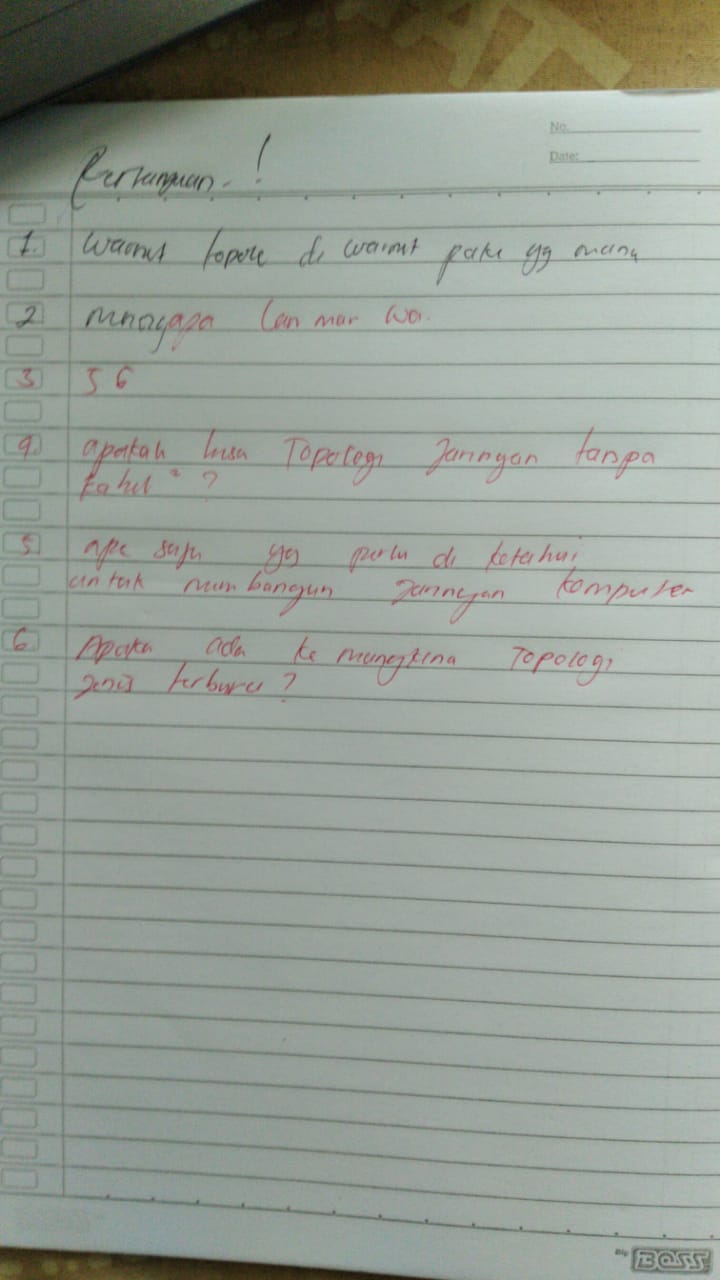 No.
Date:
Pertanyaan !
1. Warnet topolo di warnet pake yg mana
2 mnagapa lan man wa.
3 5 6
4. apakah bisa Topologi Jaringan tanpa
kabel ?
5 apa saja yg perlu di ketahui
untuk membangun Jaringan komputer
6 Apaka ada ke mungkina Topologi
Jenis terbaru ?
BOSS